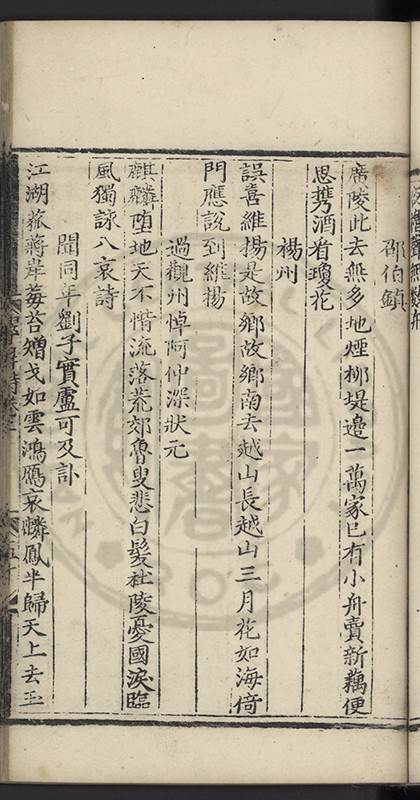 邵伯鎮
廣陵此去無多地煙柳堤邊一萬家已有小舟賣新藕便
思攜酒看瓊花
楊州
誤喜維揚是故鄉故鄉南去越山長越山三月花如海倚
門應說到維揚
過觀州悼阿仲深狀元
麒麟墮地天不惜流落荒郊魯叟悲白髮杜陵憂國淚臨
風獨詠八哀詩
聞同年劉子實盧可及訃
江湖菰蔣岸莓苔矰弋如雲鴻鴈哀麟鳳半歸天上去至